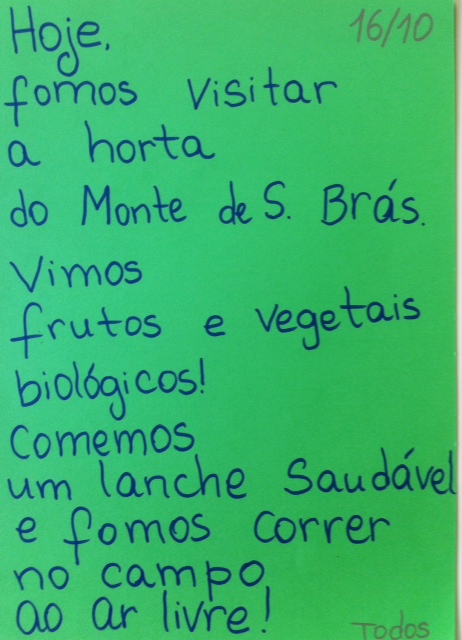 16/10
Hoje,
fomos visitar
a horta
do Monte de S. Brás.
Vimos
frutos e vegetais
biológicos!
Comemos
um lanche saudável
e fomos correr
no campo
ao ar livre!
Todos